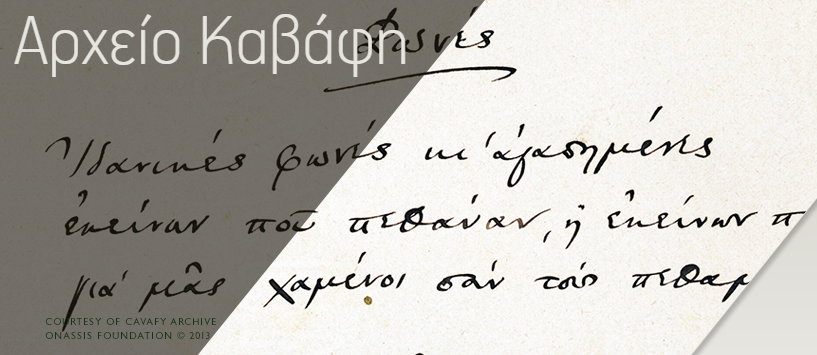 Αρχείο Καβάφη
Φωνές
Ἰδανικές φωνές κι' ἀγαπημένες
ἐκείνων ποῦ πεθάναν, ἤ ἐκείνων π
γιά μᾶς χαμένοι σάν τούς πεθαμ
COURTESY OF CAVAFY ARCHIVE
ONASSIS FOUNDATION © 2013